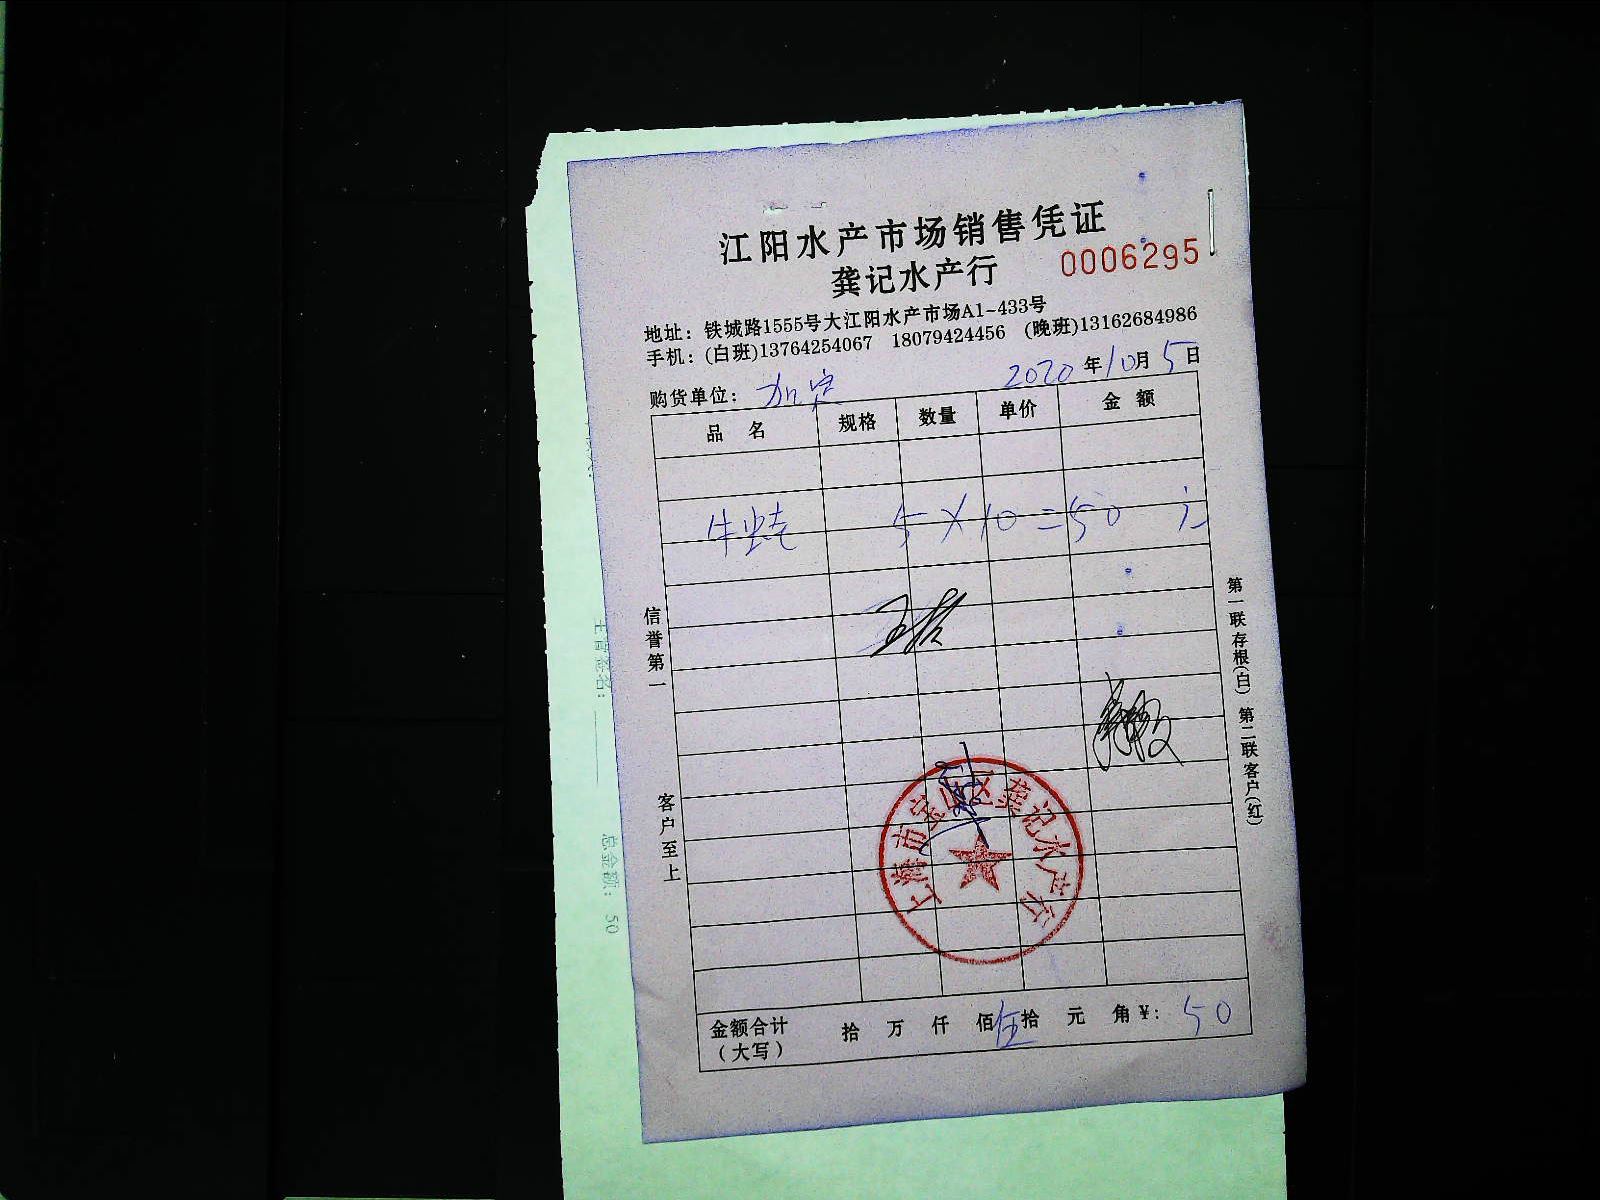 江阳水产市场销售凭证
龚记水产行
0006295
地址：铁城路1555号大江阳水产市场A1-433号
手机：(白班)13764254067 18079424456 (晚班)13162684986
购货单位：加定 2020年10月5日
品名 规格 数量 单价 金额
牛蛙 5×10=50 元
信誉第一
客户至上
第一联存根(白) 第二联客户(红)
上海市宝山区龚记水产行
金额合计 拾 万 仟 佰 伍拾 元 角¥：50
（大写）
主管签名：
总金额：50